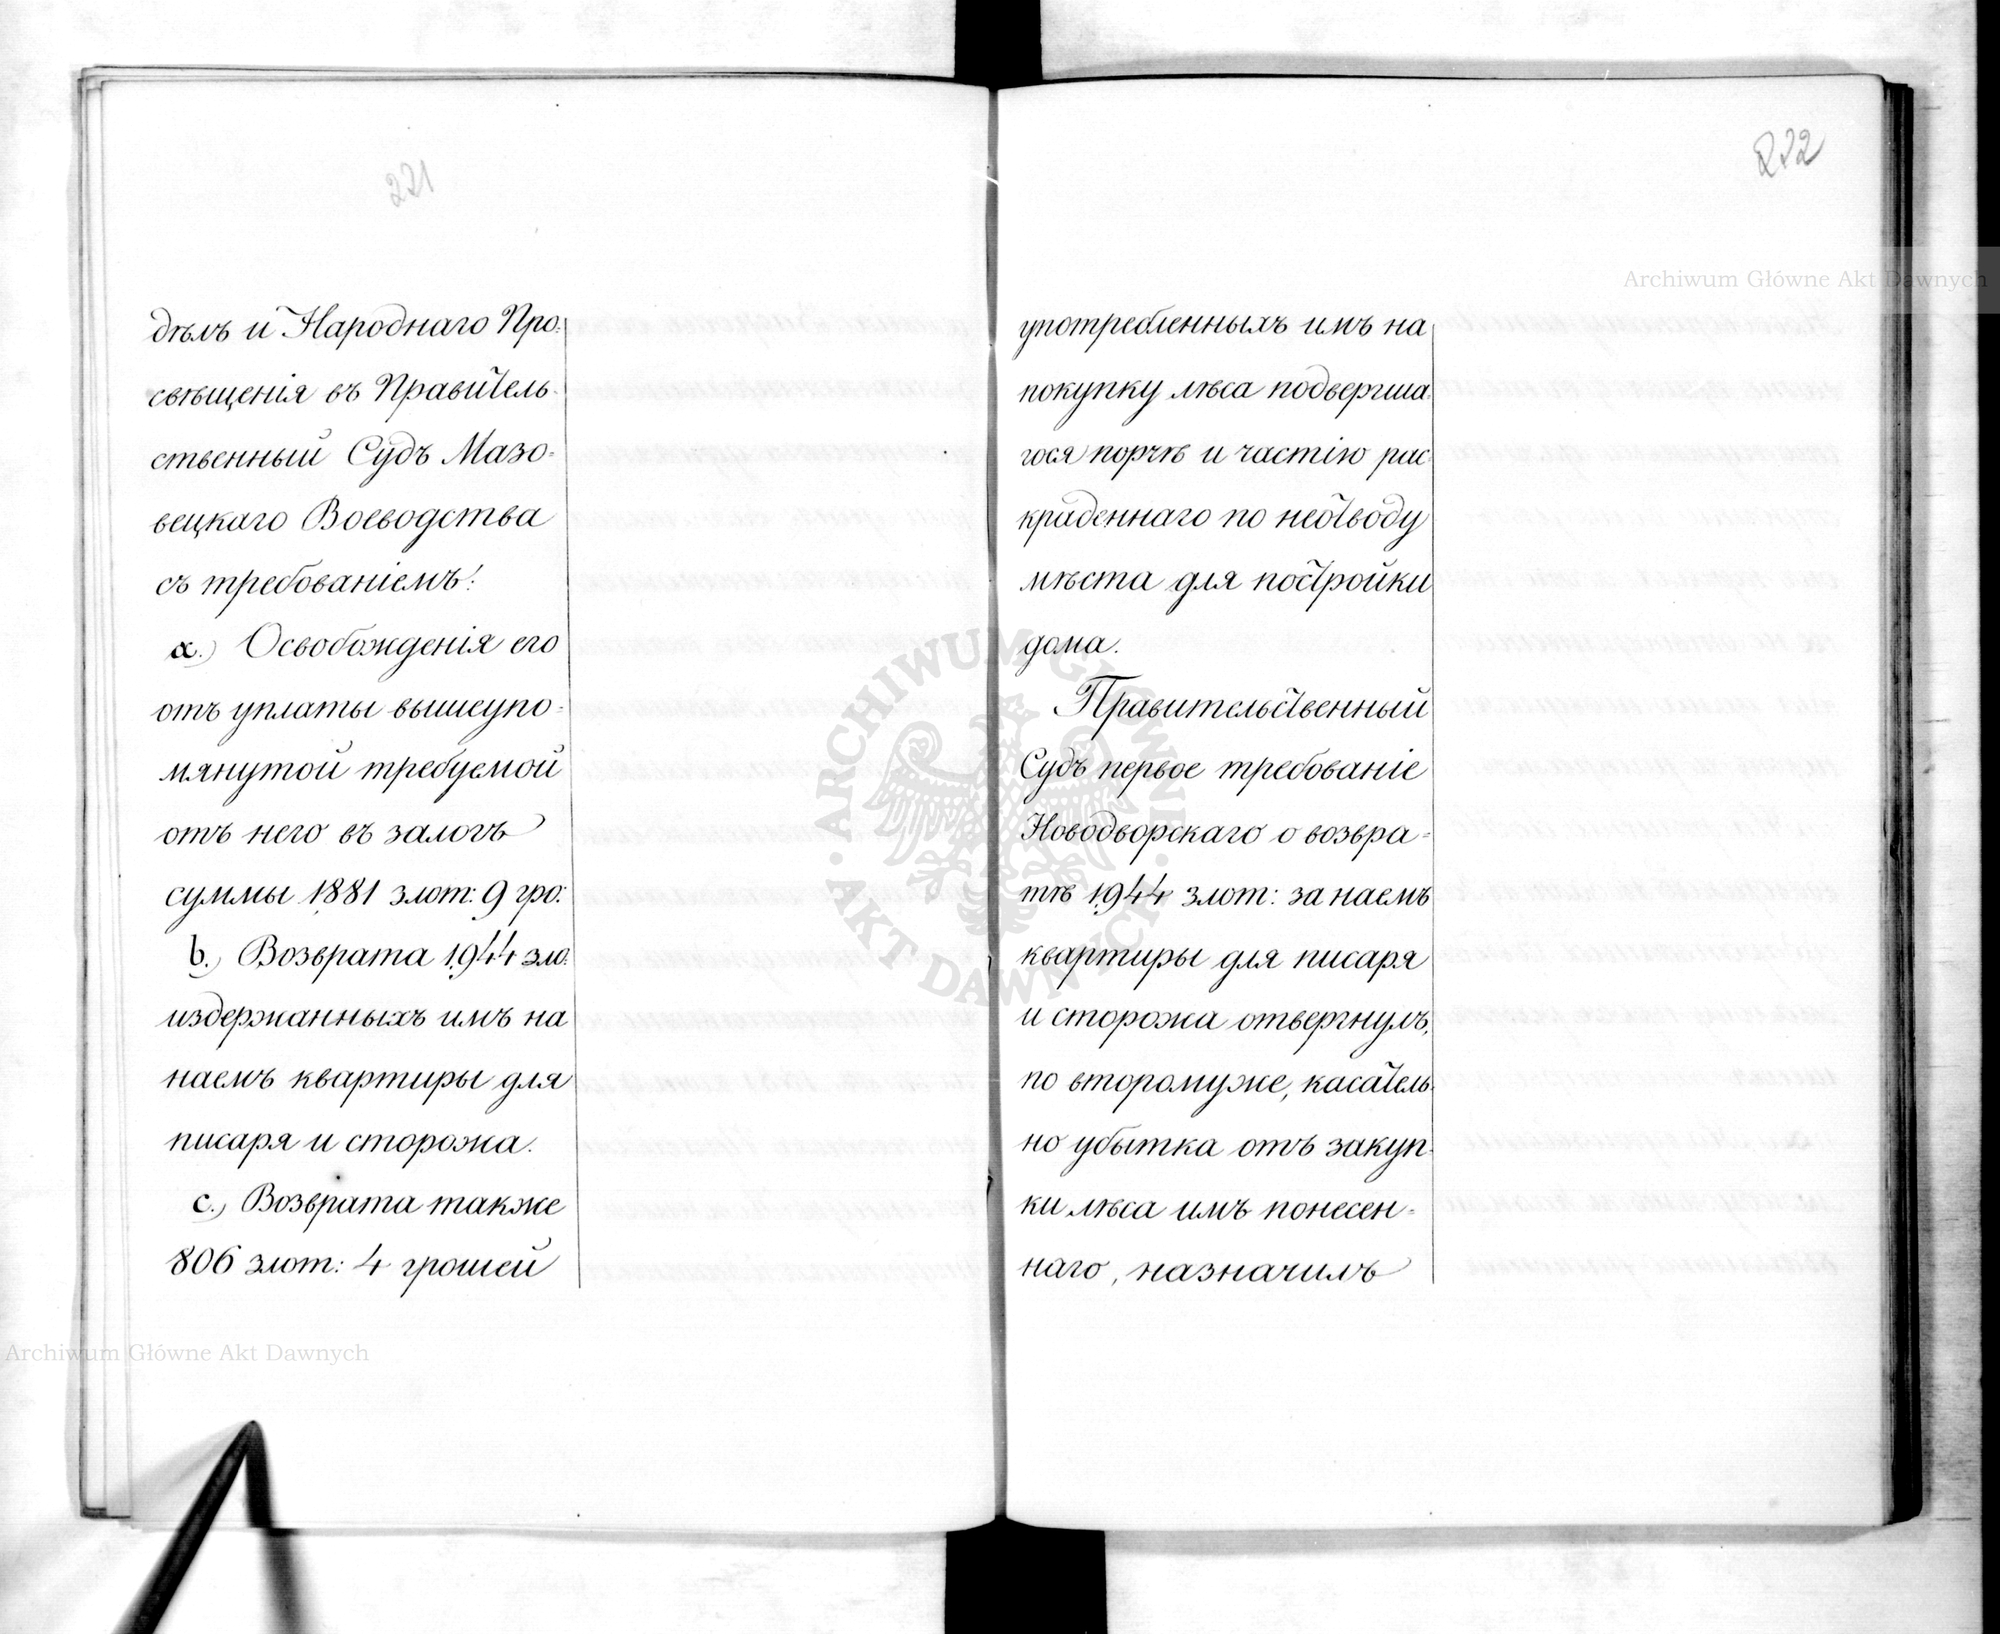 221
дѣлъ и Народнаго Про-
свѣщенія въ Правитель-
ственный Судъ Мазо-
вецкаго Воеводства
съ требованіемъ:
a.) Освобожденія его
отъ уплаты вышеупо-
мянутой требуемой
отъ него въ залогъ
суммы 1,881 злот: 9 гро:
b.) Возврата 1,944 зло:
издержанныхъ имъ на
наемъ квартиры для
писаря и сторожа.
c.) Возврата также
806 злот: 4 грошей
222
употребленныхъ имъ на
покупку лѣса подвергша-
гося порчѣ и частію рас-
краденнаго по неотводу
мѣста для постройки
дома.
Правительственный
Судъ первое требованіе
Новодворскаго о возвра-
тѣ 1,944 злот: за наемъ
квартиры для писаря
и сторожа отвергнулъ,
по второмуже, касатель-
но убытка отъ закуп-
ки лѣса имъ понесен-
наго, назначилъ
Archiwum Główne Akt Dawnych
Archiwum Główne Akt Dawnych
ARCHIWUM GŁÓWNE · AKT DAWNYCH ·